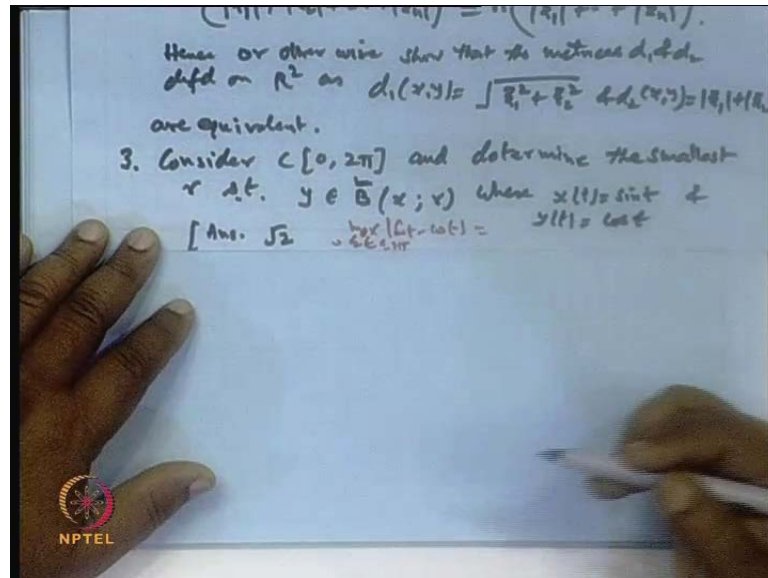 (|ξ₁|² + |ξ₂|² + ⋯ + |ξₙ|²) = n(|ξ₁|² + ⋯ + |ξₙ|²).
Hence or otherwise show that the metrices d₁ & d₂
defd on R² as d₁(x,y) = √(ξ₁² + ξ₂²) & d₂(x,y) = |ξ₁| + |ξ₂
are equivalent.
3. Consider C[0, 2π] and determine the smallest
r s.t. y ∈ B̃(x; r) where x(t) = sint &
y(t) = cost
[Ans. √2 max |sint - cost| =
0≤t≤2π
NPTEL